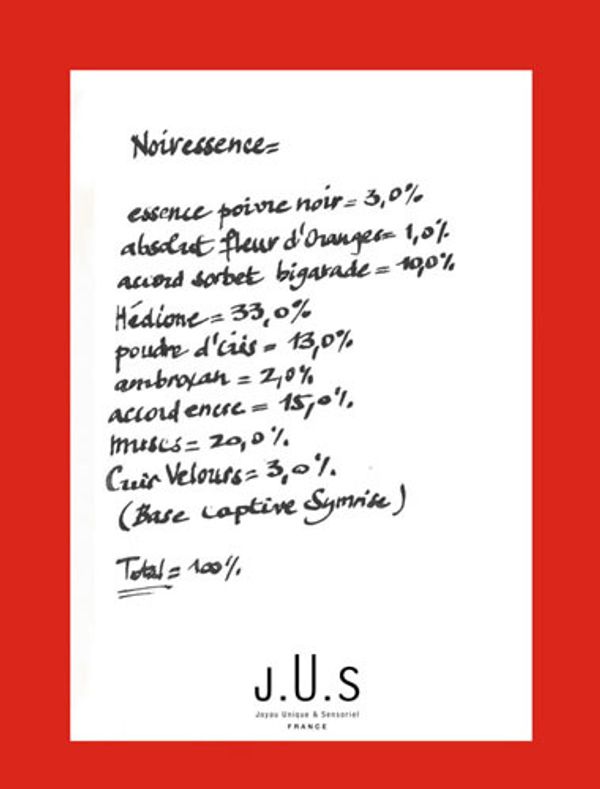 Noiressence=
essence poivre noir = 3,0%
absolut fleur d'Oranger= 1,0%
accord sorbet bigarade = 10,0%
Hédione = 33,0%
poudre d'iris = 13,0%
ambroxan = 2,0%
accord encre = 15,0%
muscs = 20,0%
Cuir Velours = 3,0%
(Base captive Symrise)
Total = 100%
J.U.S
Joyau Unique & Sensoriel
FRANCE